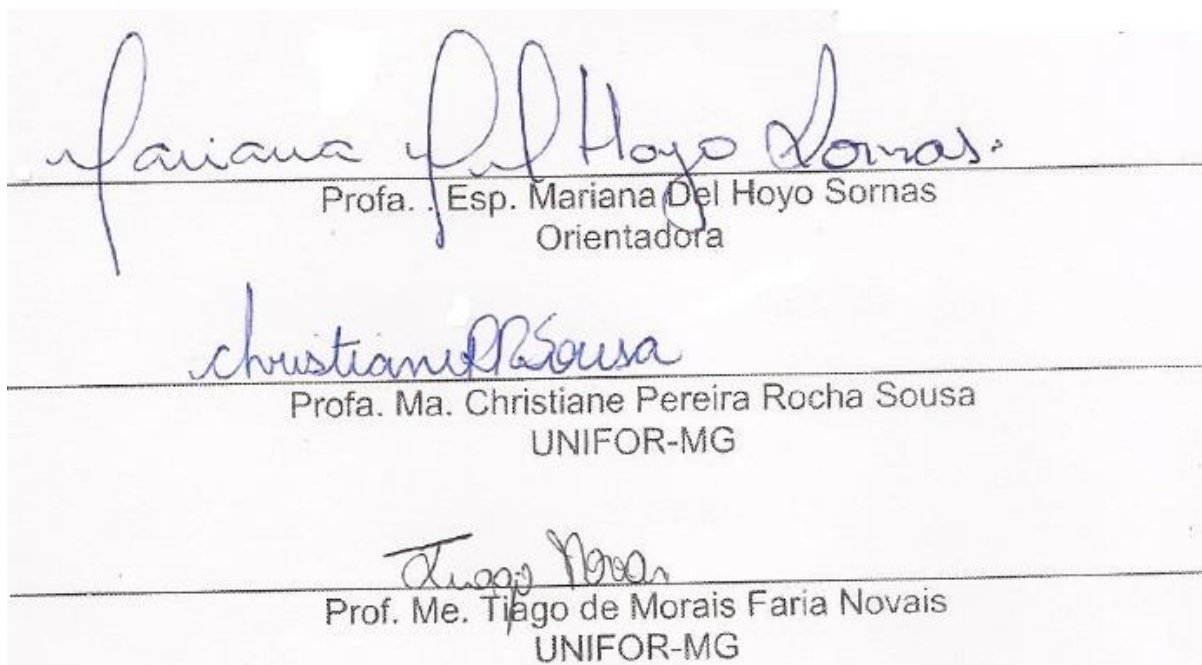 Mariana Del Hoyo Sornas.
Profa. . Esp. Mariana Del Hoyo Sornas
Orientadora
Christiane PRSousa
Profa. Ma. Christiane Pereira Rocha Sousa
UNIFOR-MG
Tiago Novais
Prof. Me. Tiago de Morais Faria Novais
UNIFOR-MG